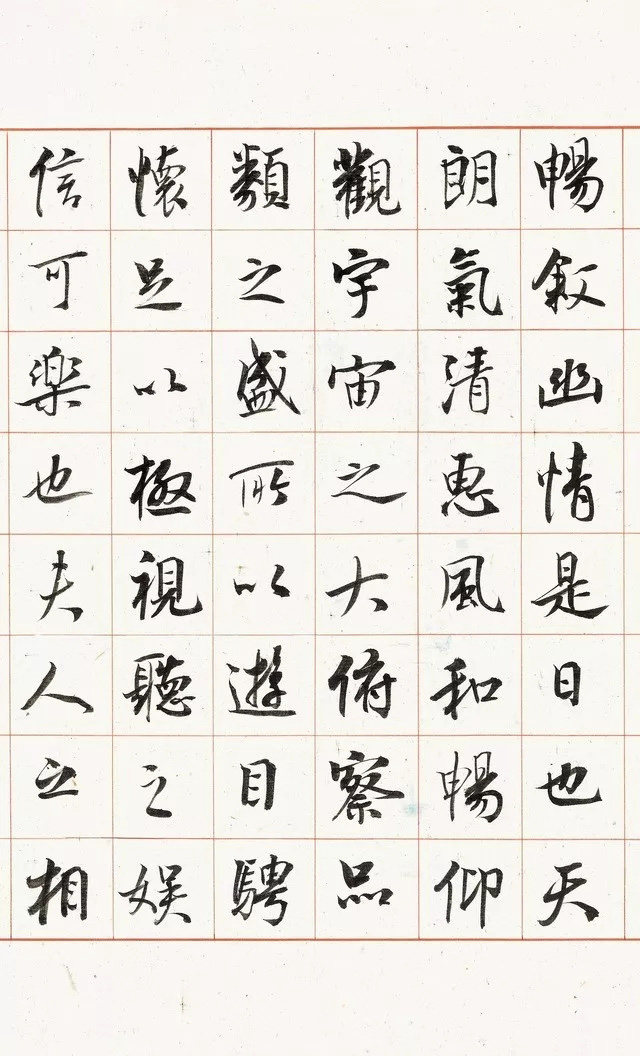 暢敘幽情是日也天
朗氣清惠風和暢仰
觀宇宙之大俯察品
類之盛所以遊目騁
懷足以極視聽之娛
信可樂也夫人之相